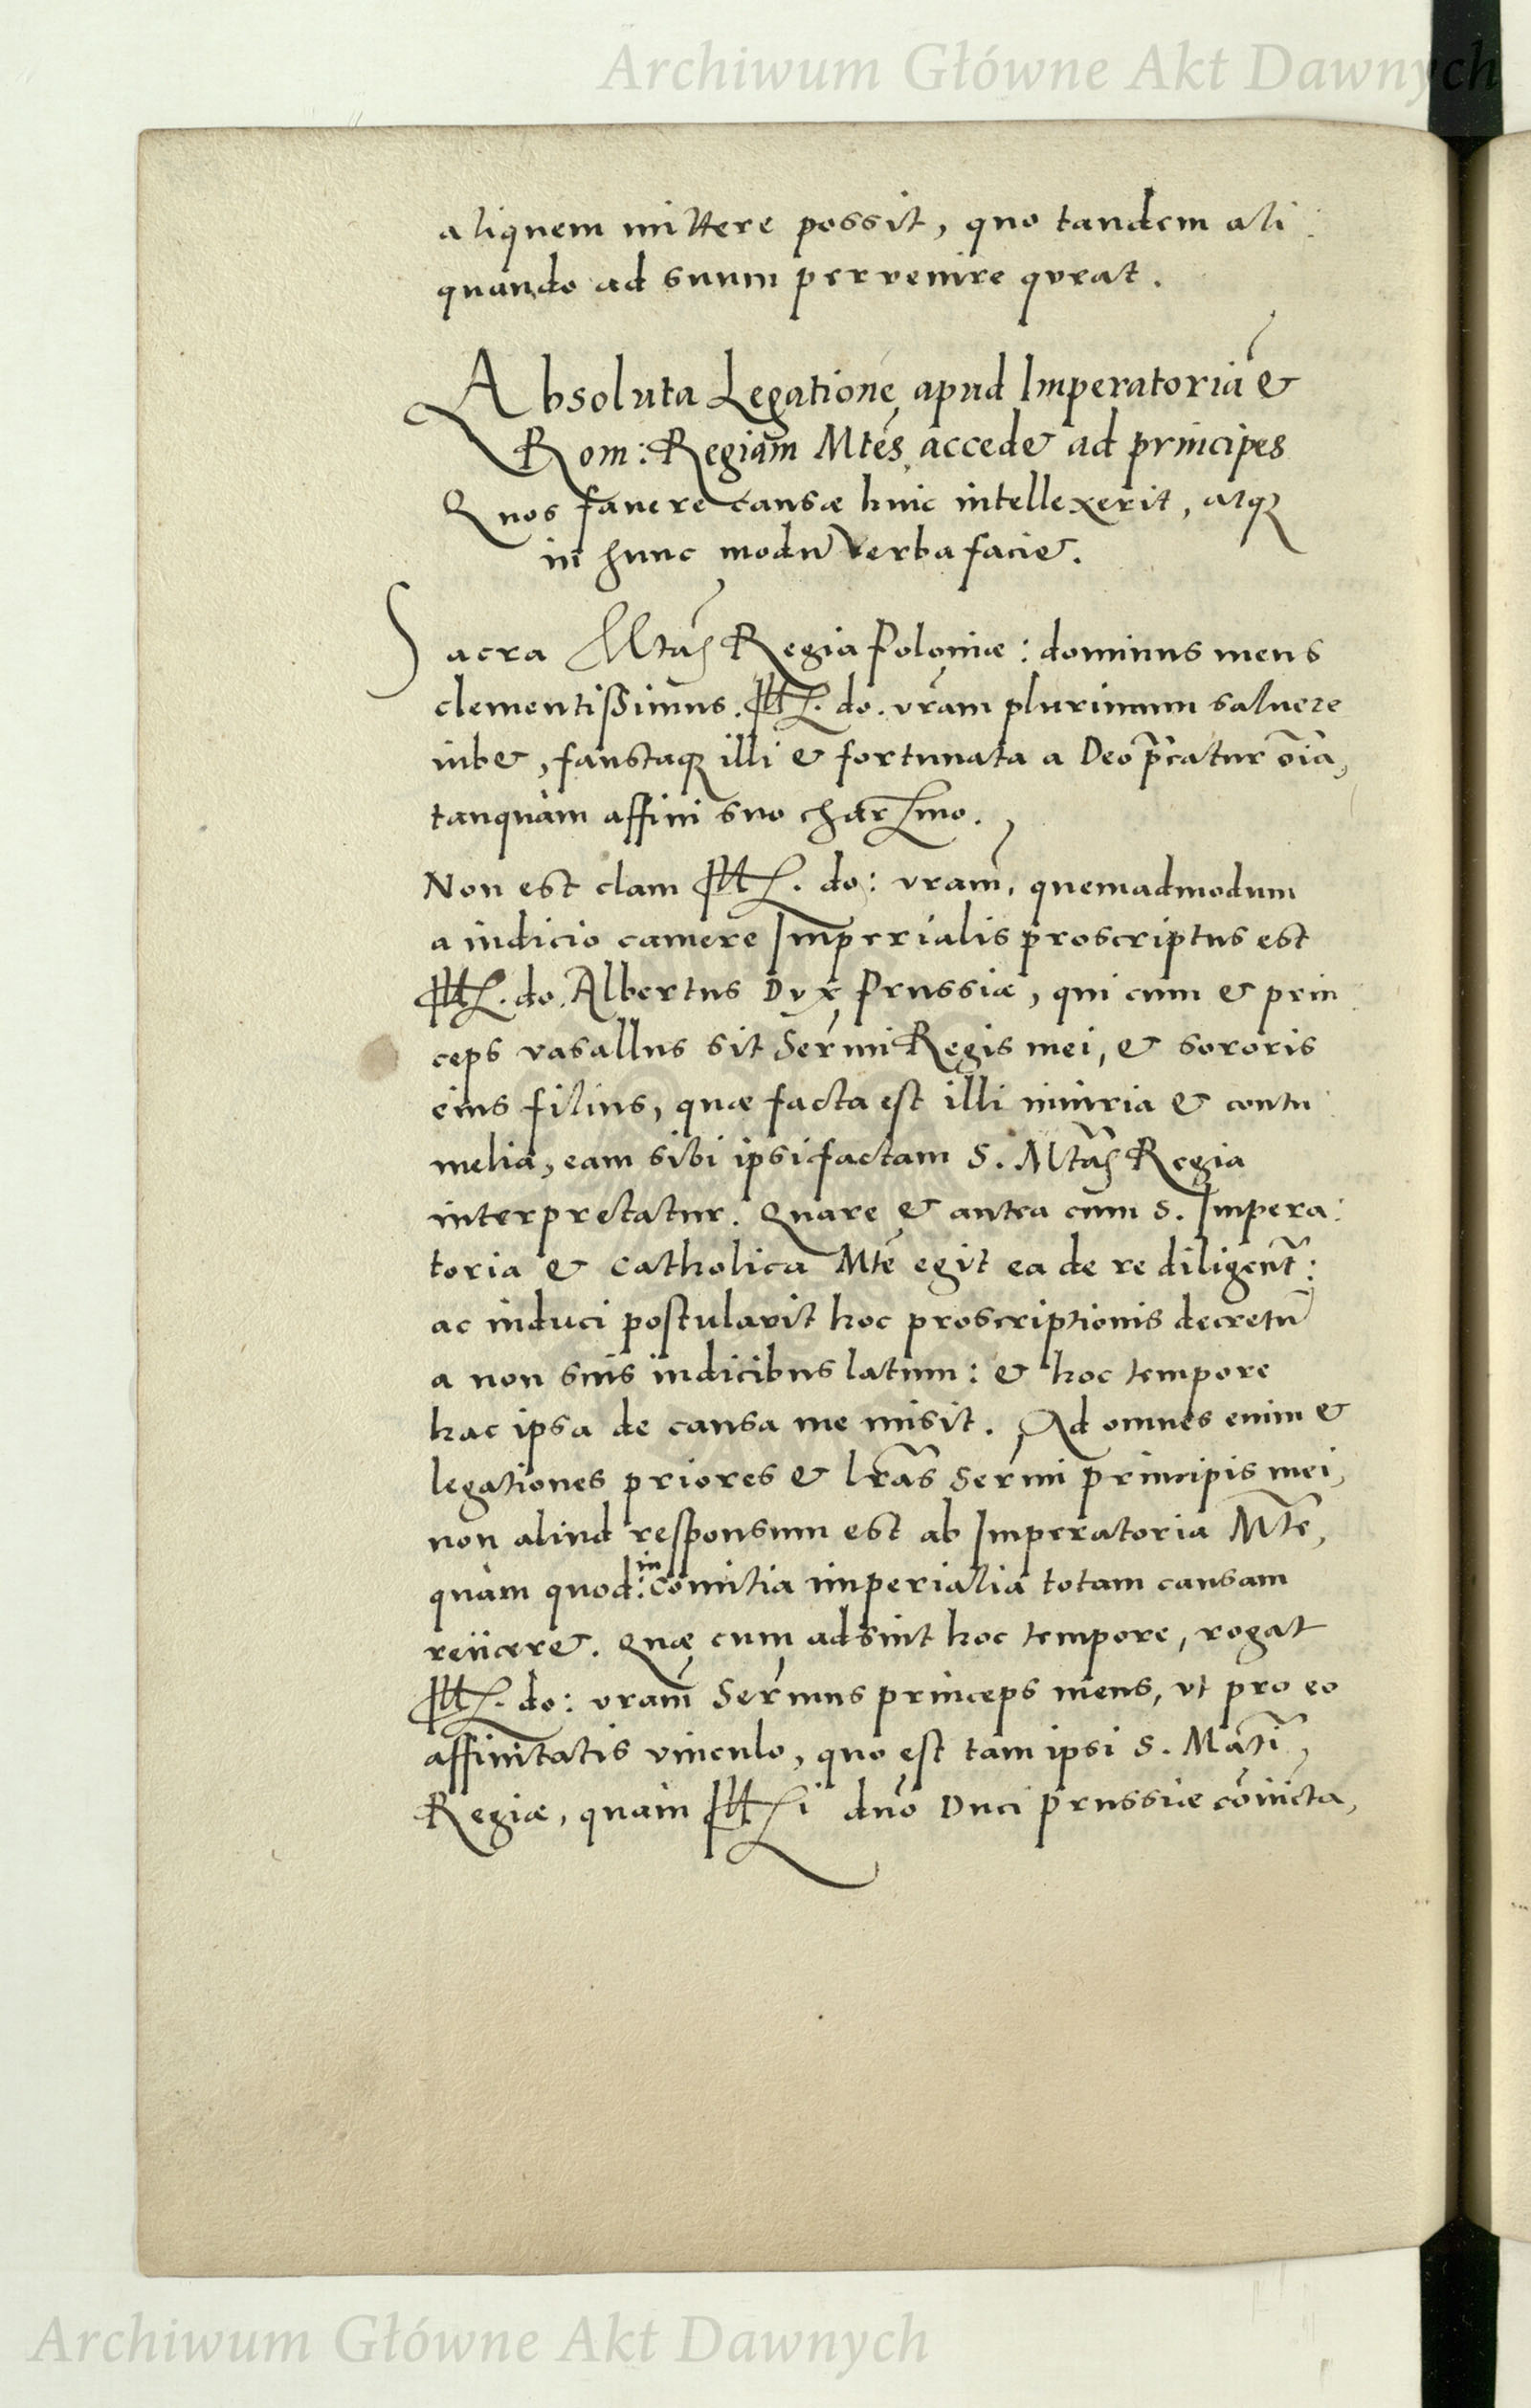 Archiwum Główne Akt Dawnych
aliquem mittere possit, quo tandem ali:
quando ad suum pervenire qveat.
Absoluta Legatione, apud Imperatoriā &
Rom: Regiam Mtēs, accedet ad principes
Quos favere causæ huic intellexerit, atq3
in hunc modū verba faciet.
Sacra Mtas Regia Poloniæ: dominus meus
clementissimus. Ill. do. vram plurimum saluere
iubet, faustaq3 illi & fortunata a Deo p̄catur oīa,
tanquam affini suo charmo.
Non est clam Ill. do: vram, quemadmodum
a iudicio camere Imperialis proscriptus est
Ill. do. Albertus Dvx Prussiæ, qui cum & prin:
ceps vasallus sit Sermi Regis mei, & sororis
eius filius, quæ facta est illi iniuria & contu:
melia, eam sibi ipsi factam S. Mtas Regia
interpretatur. Quare & antea cum S. Impera:
toria & Catholica Mtē egit ea de re diligent:
ac induci postulavit hoc proscriptionis decretū
a non suis iudicibus latum: & hoc tempore
hac ipsa de causa me misit. Ad omnes enim &
legationes priores & lrās Sermi principis mei,
non aliud responsum est ab Imperatoria Mtē,
quam quod: in comitia imperialia totam causam
reiiceret. Quæ cum adsint hoc tempore, rogat
Ill. do: vram Sermus princeps meus, vt pro eo
affinitatis vinculo, quo est tam ipsi S. Mati,
Regiæ, quam Illi dnō Duci prussiæ cōiūcta,
Archiwum Główne Akt Dawnych